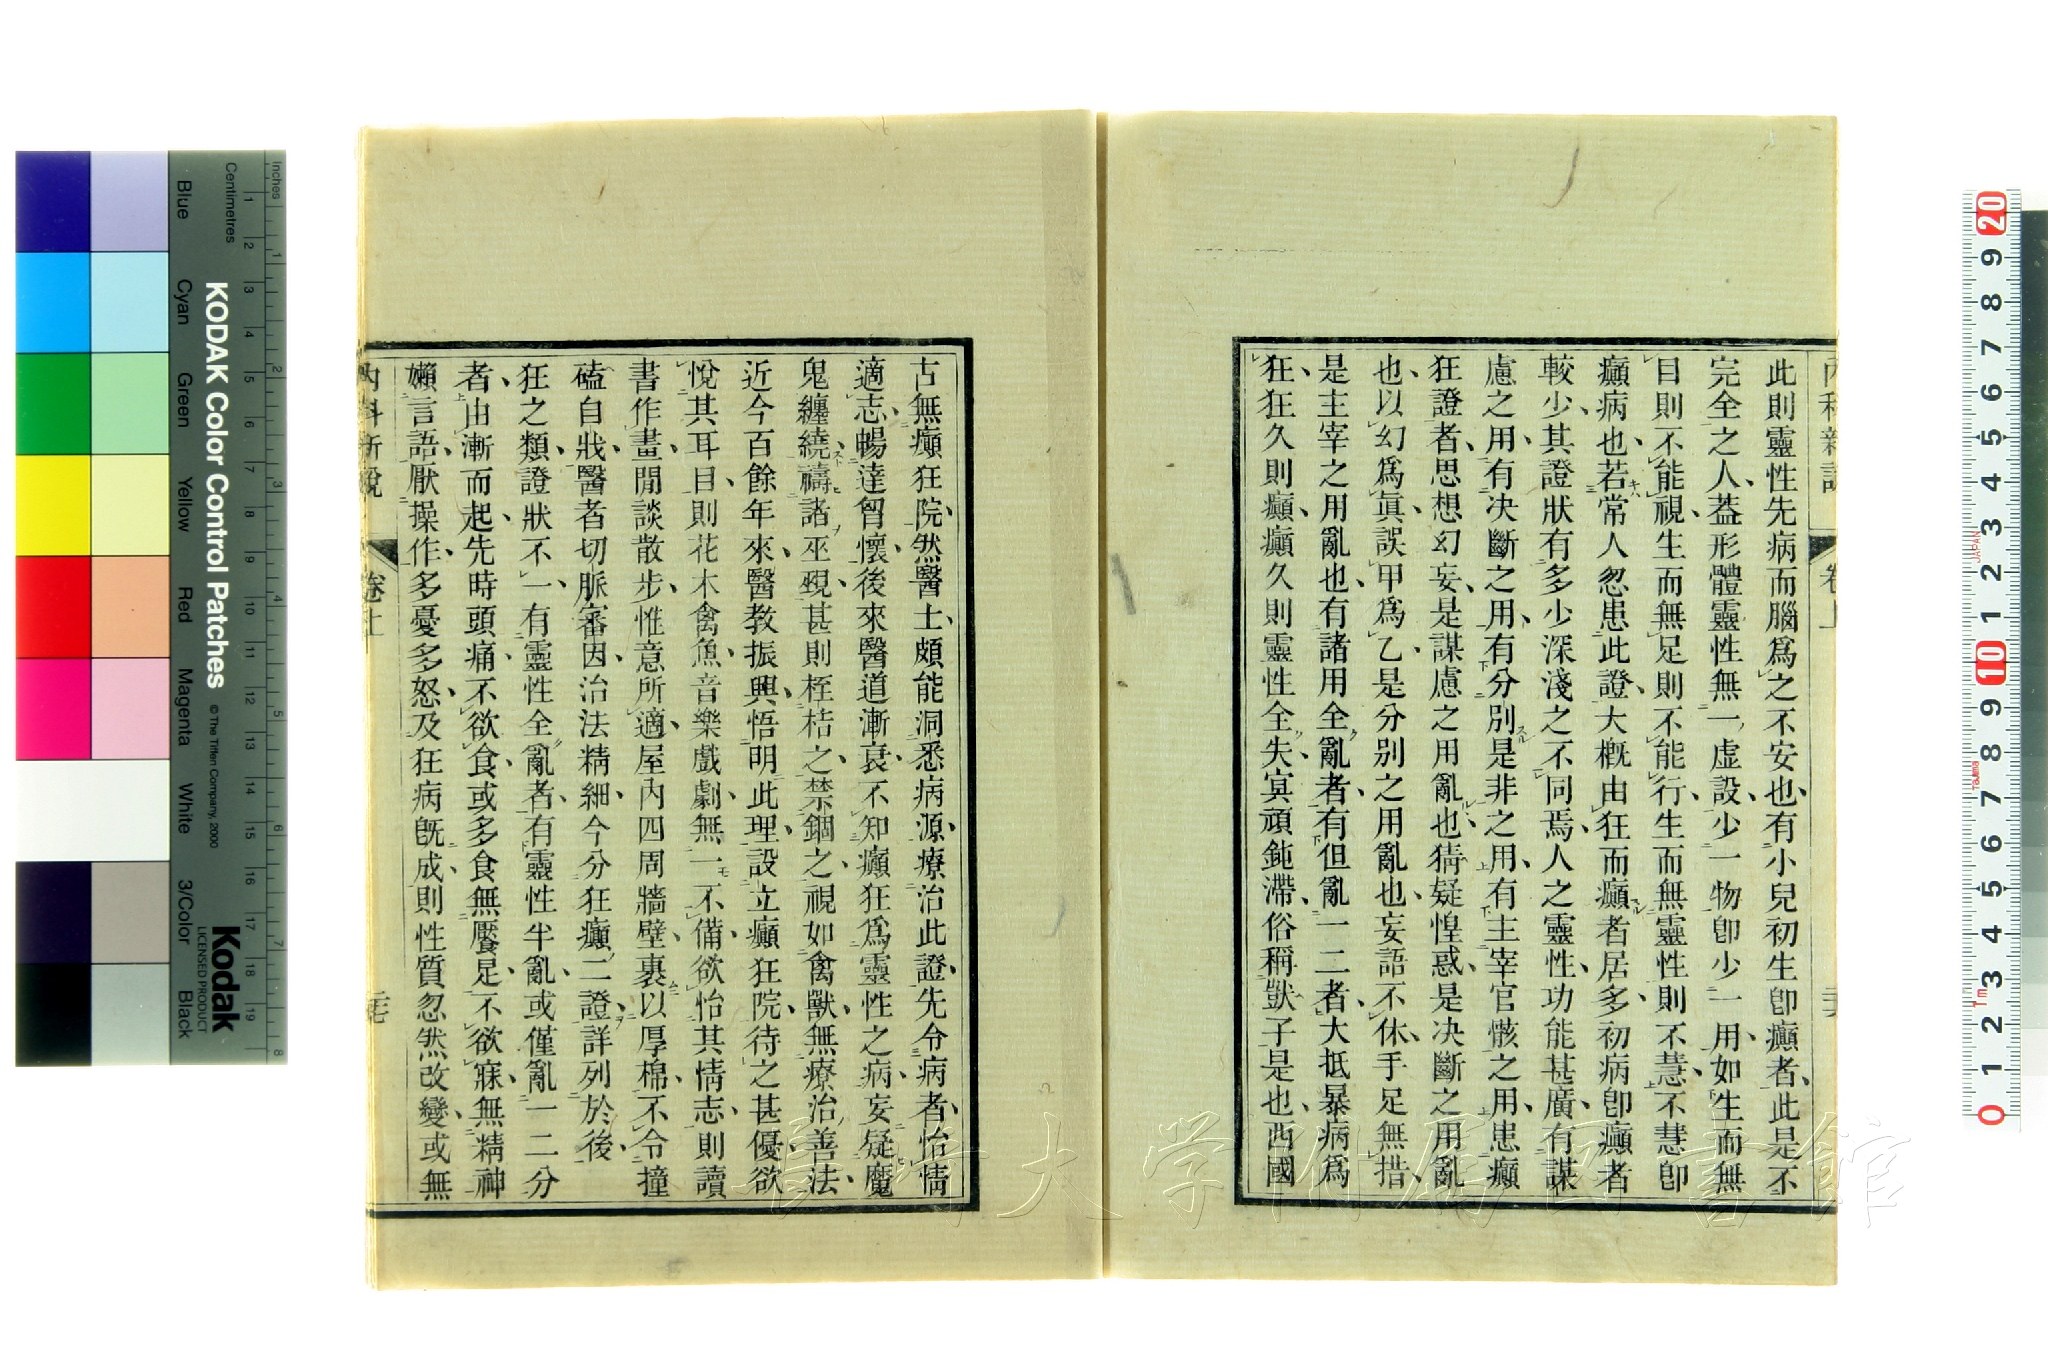 內科新說
卷上
此則靈性先病而腦爲之不安也有小兒初生卽癲者此是不
完全之人蓋形體靈性無一虛設少一物卽少一用如生而無
目則不能視生而無足則不能行生而無靈性則不慧不慧卽
癲病也若常人忽患此證大槪由狂而癲者居多初病卽癲者
較少其證狀有多少深淺之不同焉人之靈性功能甚廣有謀
慮之用有決斷之用有分別是非之用有主宰官骸之用患癲
狂證者思想幻妄是謀慮之用亂也猜疑惶惑是決斷之用亂
也以幻爲眞誤甲爲乙是分別之用亂也妄語不休手足無措
是主宰之用亂也有諸用全亂者有但亂一二者大抵暴病爲
狂狂久則癲癲久則靈性全失冥頑鈍滯俗稱獃子是也西國
古無癲狂院然醫士頗能洞悉病源療治此證先令病者怡情
適志暢達胷懷後來醫道漸衰不知癲狂爲靈性之病妄疑魔
鬼纏繞禱諸巫覡甚則桎梏之禁錮之視如禽獸無療治善法
近今百餘年來醫教振興悟明此理設立癲狂院待之甚優欲
悅其耳目則花木禽魚音樂戲劇無一不備欲怡其情志則讀
書作畫閒談散步惟意所適屋內四周牆壁裹以厚棉不令撞
磕自戕醫者切脈審因治法精細今分狂癲二證詳列於後
狂之類證狀不一有靈性全亂者有靈性半亂或僅亂一二分
者由漸而起先時頭痛不欲食或多食無饜足不欲寐無精神
嬾言語厭操作多憂多怒及狂病旣成則性質忽然改變或無
內科新說
卷上
二七
KODAK Color Control Patches
© The Tiffen Company, 2000
Kodak
LICENSED PRODUCT
Inches
Centimetres
Blue
Cyan
Green
Yellow
Red
Magenta
White
3/Color
Black
長崎大学附属図書館